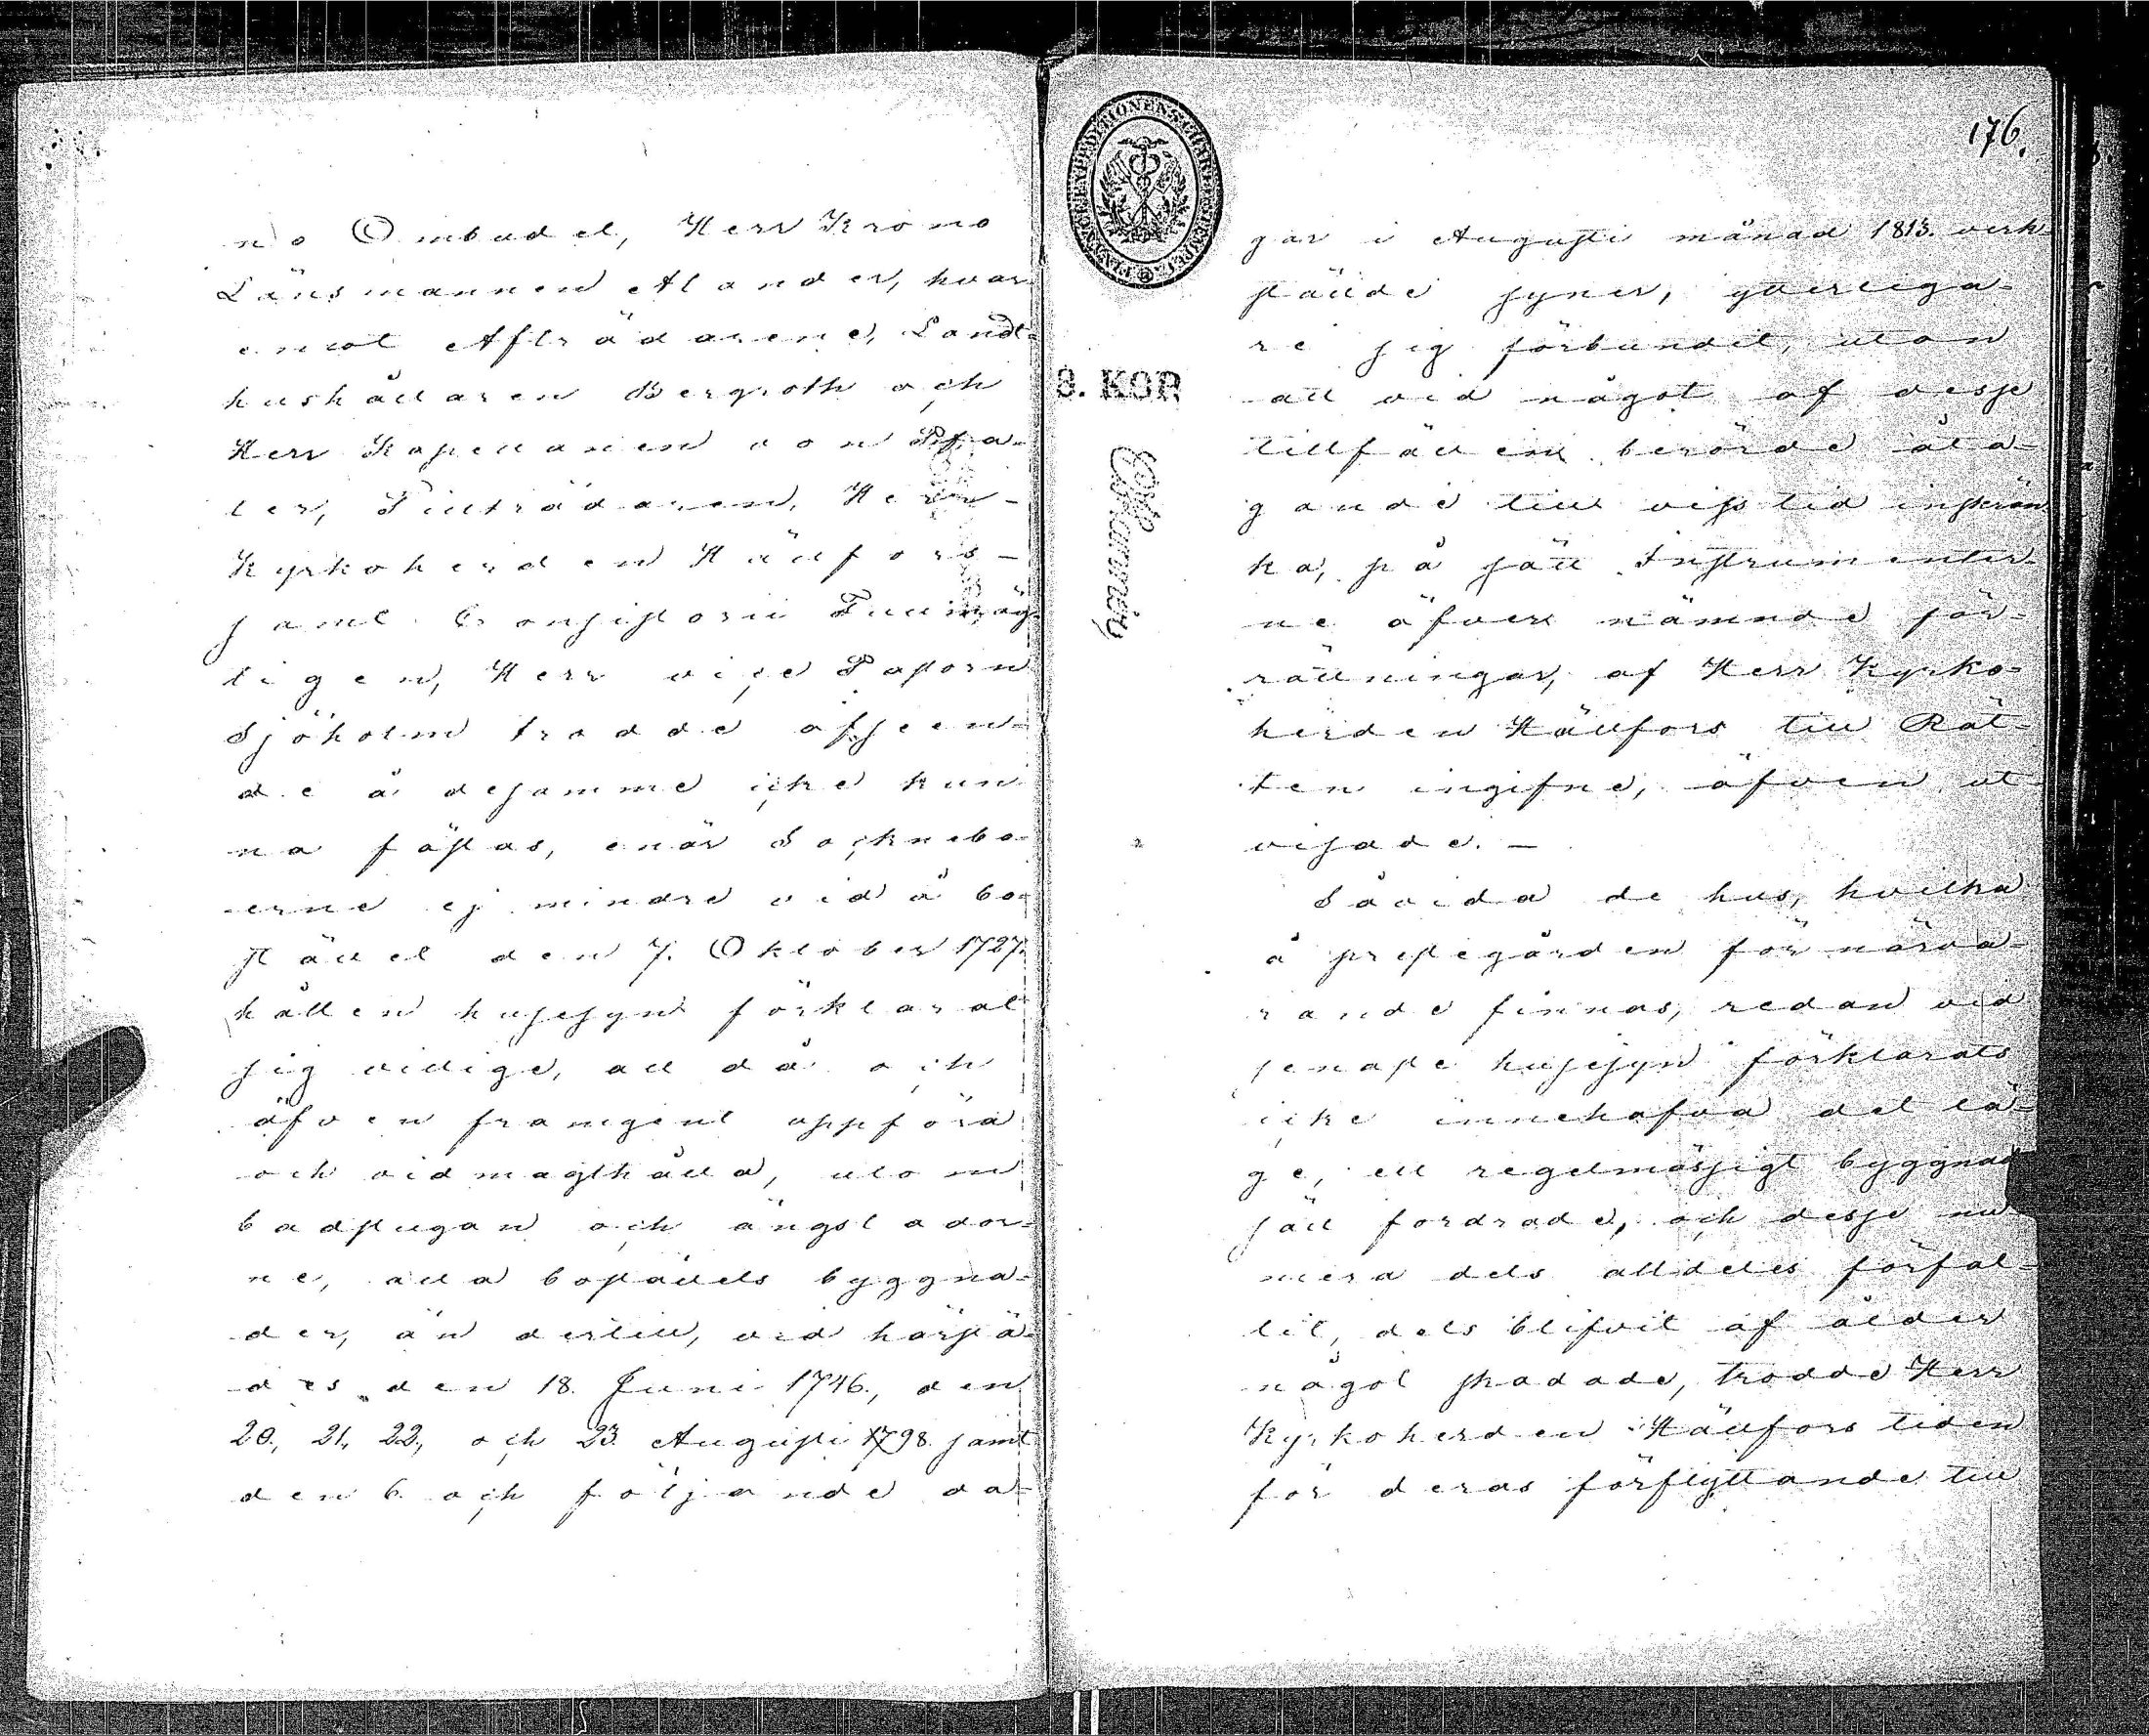 no Ombudet, Herr Krono
Länsmannen Alander, hvar
emot Afträdarene, Landt-
hushållaren Bergroth och
Herr Kapellanen von Pfa-
ler, Tillträdaren, Herr
Kyrkoherden Hällfors
samt Consistorii Fullmäg-
tigen, Herr vice Pastorn
Sjöholm trodde afseen-
de å desamme icke kun
na fästas, enär Socknebo-
erne ej mindre vid å bo-
stället den 7. Oktober 1727.
hållen husesyn förklarat
sig villige, att då och
äfven framgent uppföra
och vidmagthålla, utom
badstugan och ängslador-
ne, alla boställets byggna-
der, än dertill, vid härstä-
des den 18. Juni 1746., den
20., 21., 22., och 23. Augusti 1798. samt
den 6. och följande da-
176.
8. KOP.
gar i Augusti månad 1813. verk-
stälde syner, ytterliga-
re sig förbundit, utan
att vid något af desse
tillfällen berörde åta-
gande till viss tid inskrän
ka, på sätt Instrumenter-
ne öfver nämnde för-
rättningar, af Herr Kyrko-
herden Hällfors till Rät-
ten ingifne, äfven ut
visade. —
Såvida de hus, hvilka
å prestegården för närva-
rande finnas, redan vid
senaste husesyn förklarats
icke innehafva det lä-
ge, ett regelmässigt byggnad
sätt fordrade, och desse nu
mera dels alldeles förfal-
lit, dels blifvit af ålder
något skadade, trodde Herr
Kyrkoherden Hällfors tiden
för deras förflyttande till